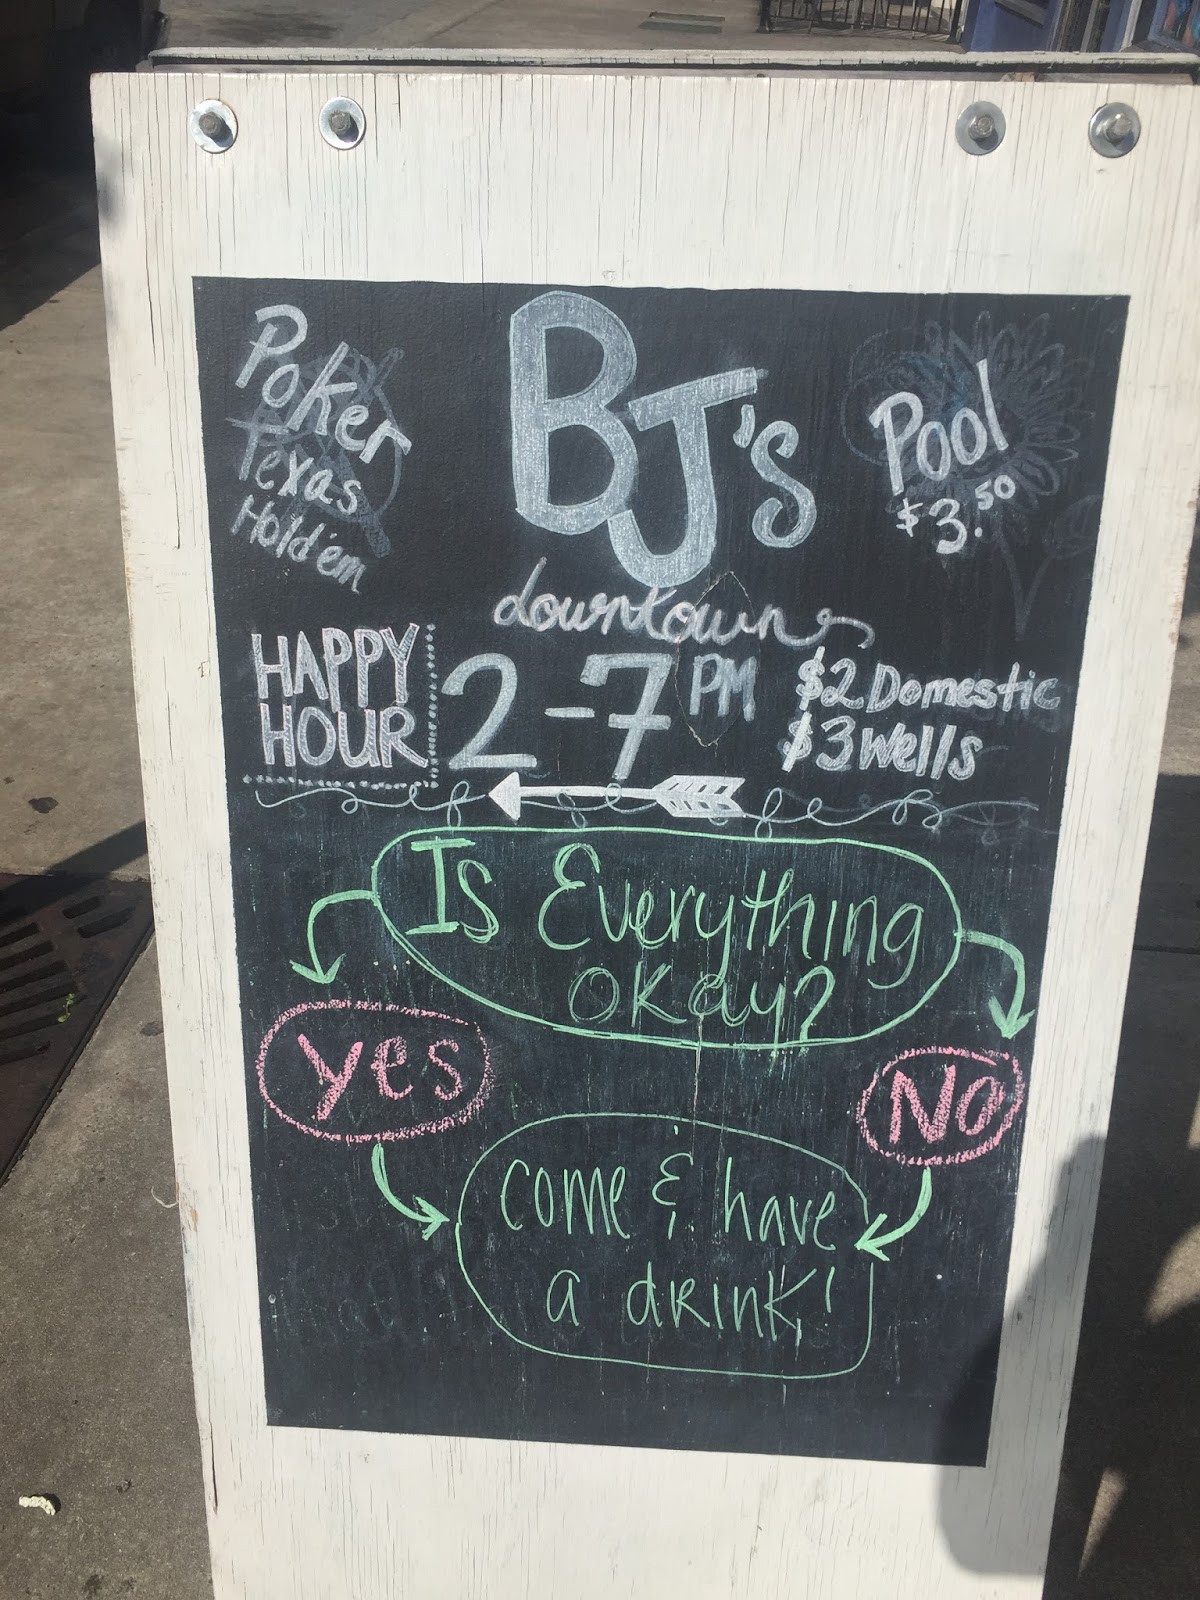 Poker
Texas
Hold'em
BJ's
downtown
Pool
$3.50
HAPPY
HOUR
2-7 PM
$2 Domestic
$3 Wells
Is Everything
okay?
Yes
No
come & have
a drink!